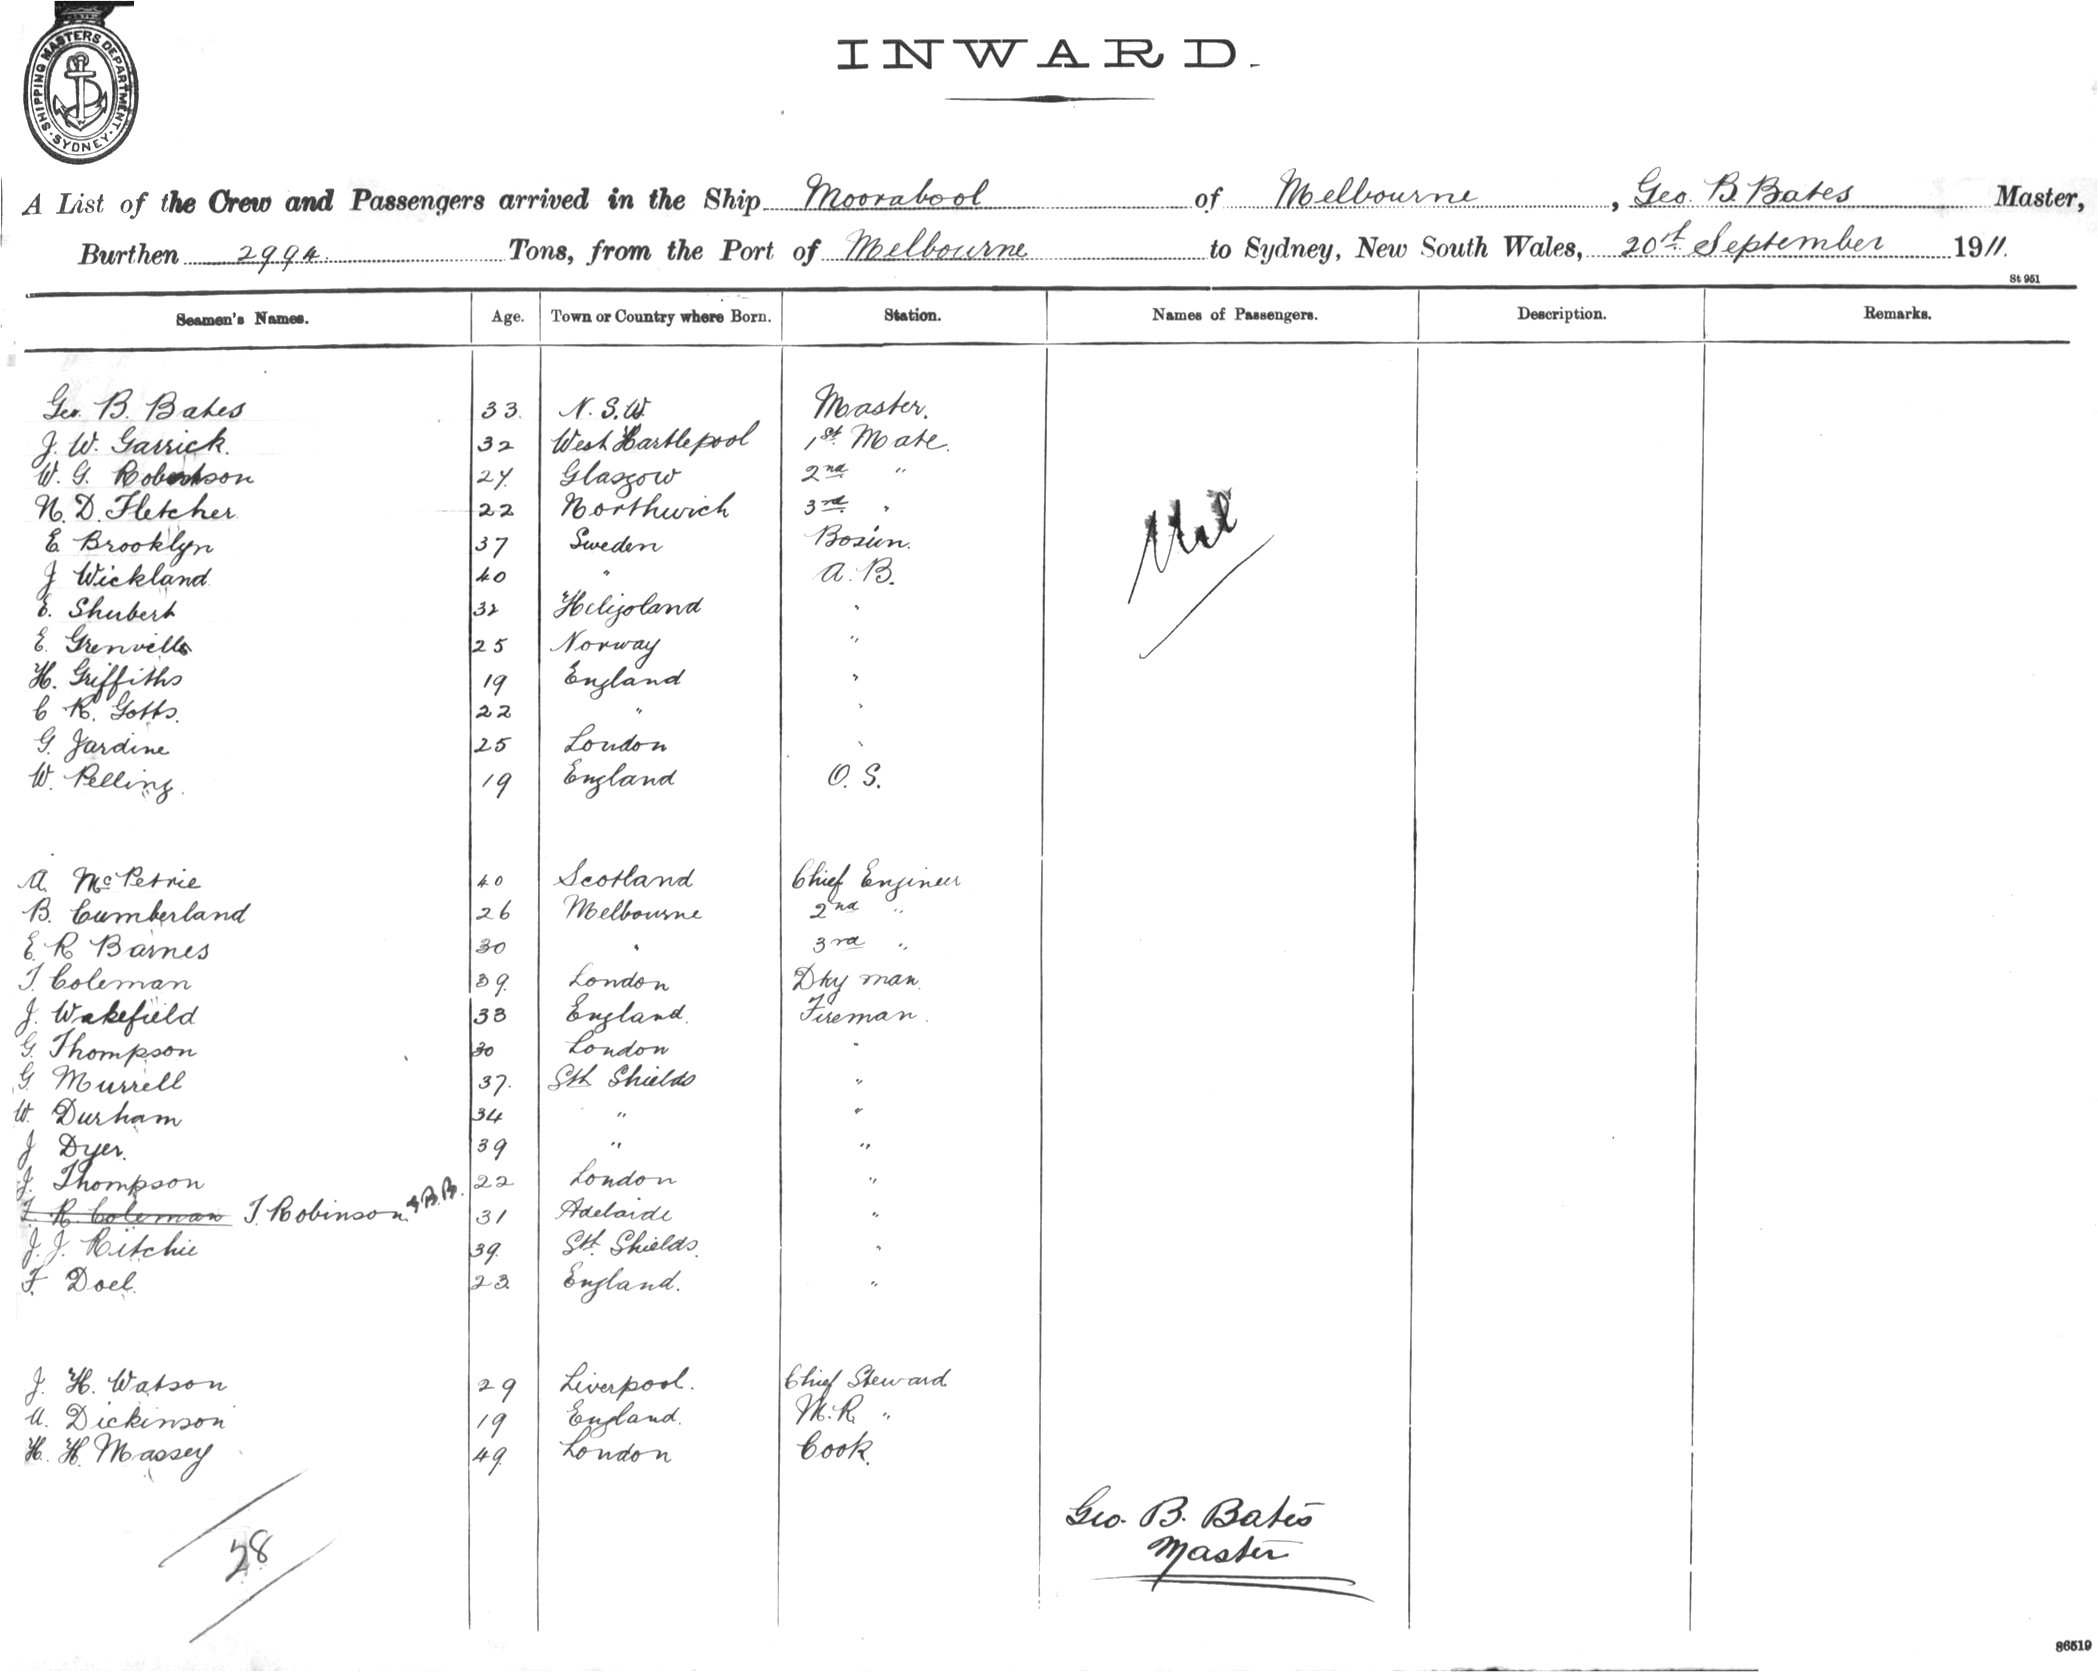 SHIPPING MASTERS DEPARTMENT · SYDNEY ·
INWARD.
A List of the Crew and Passengers arrived in the Ship Moorabool of Melbourne, Geo. B. Bates Master,
Burthen 2994. Tons, from the Port of Melbourne to Sydney, New South Wales, 20th September 1911.
St 951
Seamen's Names. Age. Town or Country where Born. Station. Names of Passengers. Description. Remarks.
Geo. B. Bates 33. N. S. W. Master.
J. W. Garrick. 32 West Hartlepool 1st Mate.
W. G. Robertson 27. Glasgow 2nd "
N. D. Fletcher 22 Northwich 3rd. "
Nil
E. Brooklyn 37 Sweden Bosun.
J Wickland 40 " A. B.
E. Shubert 32 Heligoland "
E. Grenville 25 Norway "
H. Griffiths 19 England "
C R. Gotts. 22 " "
G. Jardine 25 London "
W. Pelling. 19 England O. S.
A. McPetrie 40 Scotland Chief Engineer
B. Cumberland 26 Melbourne 2nd "
E. R Barnes 30 " 3rd "
T Coleman 39. London Dky man.
J. Wakefield 33 England. Fireman.
G. Thompson 30 London "
G Murrell 37. Sth Shields "
W. Durham 34 " "
J Dyer. 39 " "
J. Thompson 22 London "
T. R. Coleman T. Robinson G.B.B. 31 Adelaide "
J. J. Ritchie 39. Sth. Shields. "
F. Doel. 23. England. "
J. H. Watson 29 Liverpool. Chief Steward
A. Dickinson 19 England. M. R. "
H. H. Massey 49. London Cook.
Geo. B. Bates
Master
28
86519